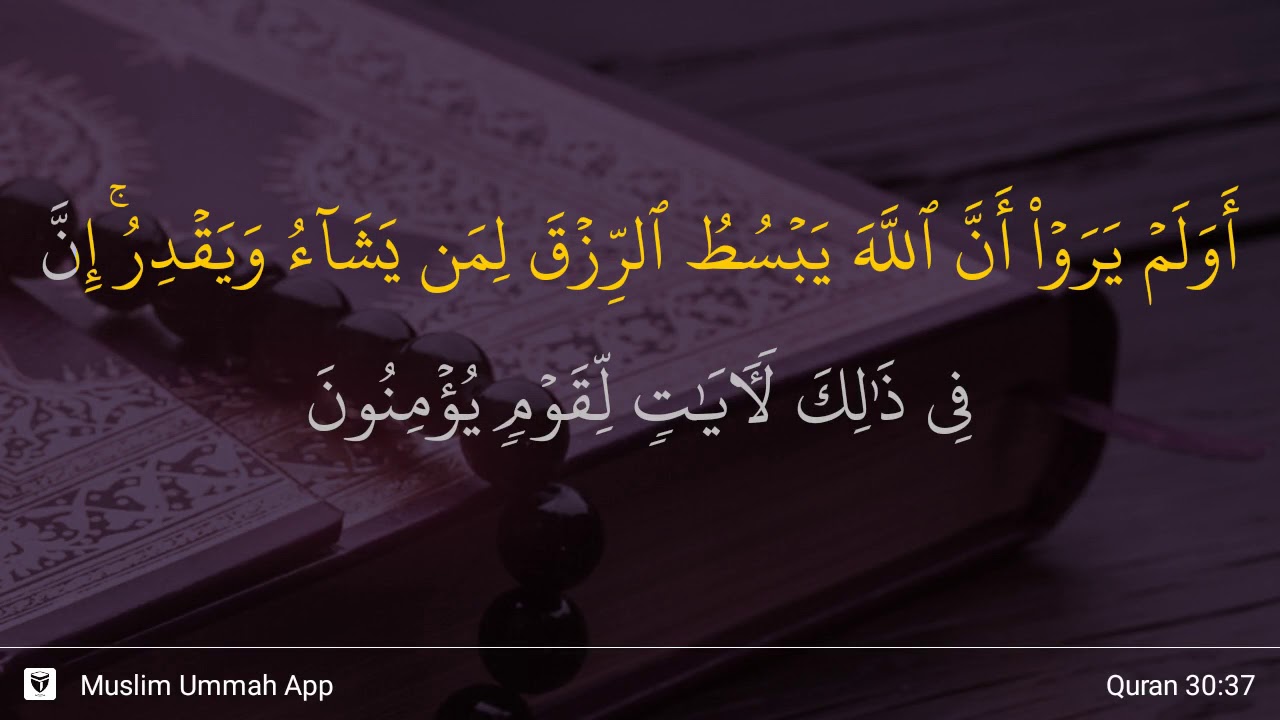 أَوَلَمۡ يَرَوۡاْ أَنَّ ٱللَّهَ يَبۡسُطُ ٱلرِّزۡقَ لِمَن يَشَآءُ وَيَقۡدِرُۚ إِنَّ
فِي ذَٰلِكَ لَأٓيَٰتٖ لِّقَوۡمٖ يُؤۡمِنُونَ
Muslim Ummah App
Quran 30:37